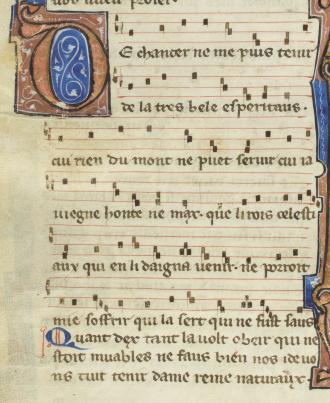 De chanter ne me puis tenir
de la tres bele esperitaus.
cui rien du mont ne puet servir cui ia
viegne honte ne max. que li rois celesti
aux qui en li daigna venir. ne porroit
mie soffrir qui la sert qui ne fust saus
Quant dex tant la volt obeir qui ne
stoit muables ne faus bien nos i devo
ns tuit tenir dame reine naturaux.